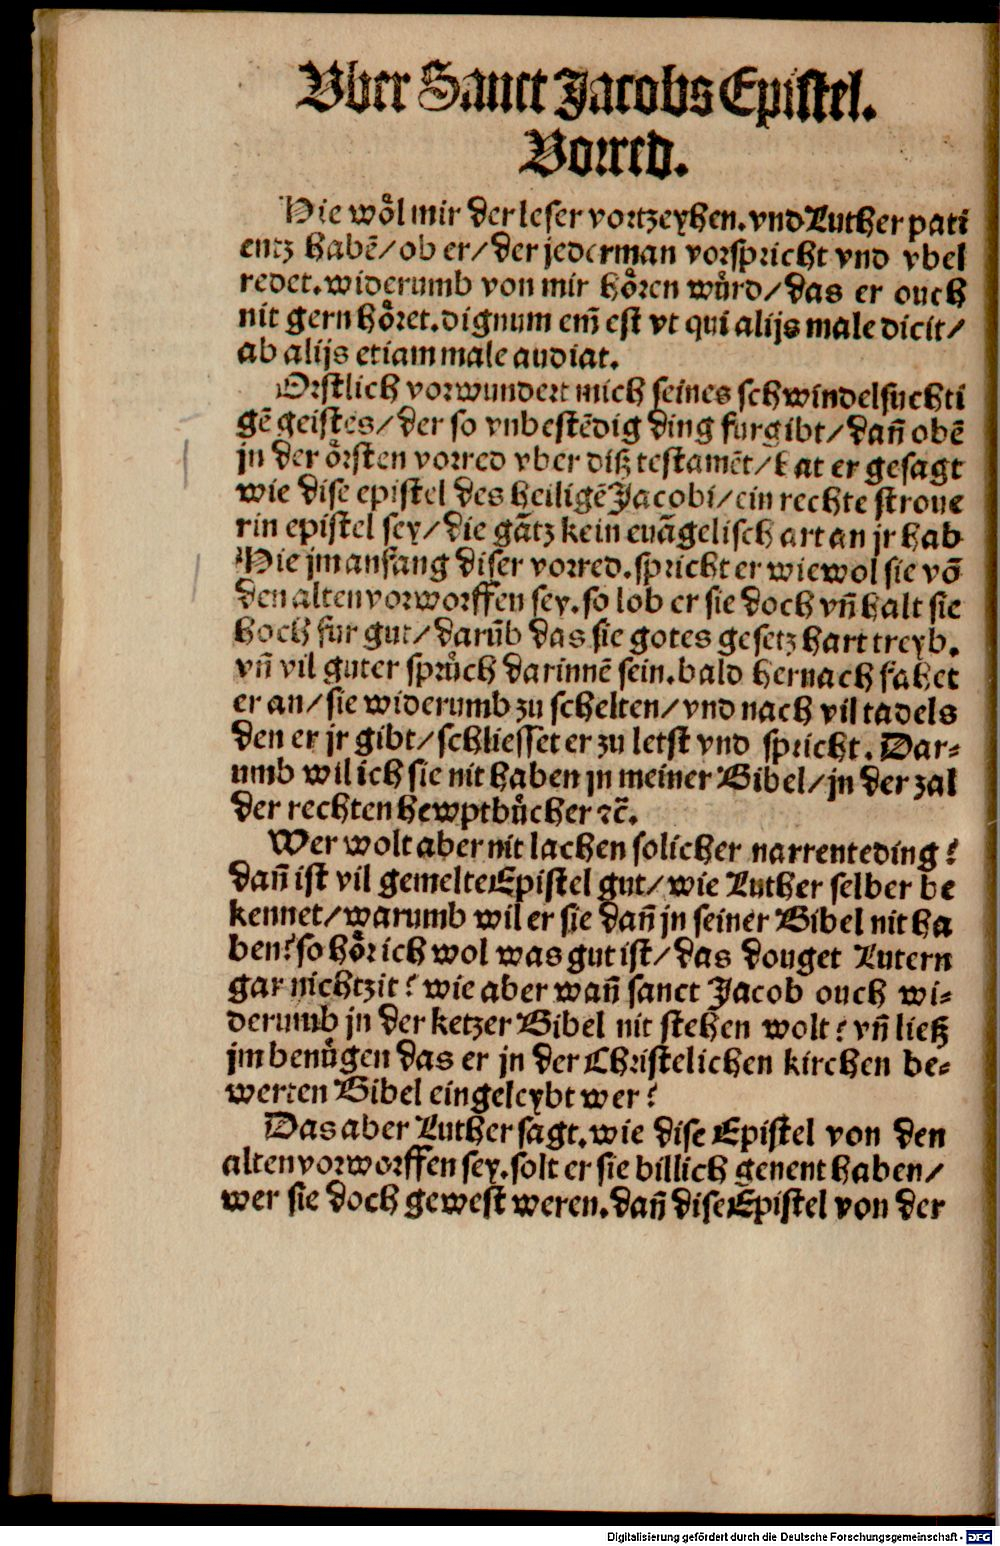 Vber Sanct Jacobs Epistel.
Vorred.
Hie wöl mir der leser vortzeyhen. vnd Luther pati
entz habē/ ob er/ der jederman vorspricht vnd vbel
redet. widerumb von mir hören würd/ das er ouch
nit gern höret. dignum em̄ est vt qui alijs male dicit/
ab alijs etiam male audiat.
Örstlich vorwundert mich seines schwindelsuchti
gē geistes/ der so vnbestēdig ding furgibt/ dañ obē
jn der örsten vorred vber diß testamēt/ hat er gesagt
wie dise epistel des heiligē Jacobi/ ein rechte stroue
rin epistel sey/ die gātz kein euāgelisch art an jr hab
Hie jm anfang diser vorred. spricht er wiewol sie vō
den alten vorworffen sey. so lob er sie doch vñ halt sie
hoch fur gut/ darūb das sie gotes gesetz hart treyb.
vñ vil guter sprüch darinnē sein. bald hernach fahet
er an/ sie widerumb zu schelten/ vnd nach vil tadels
den er jr gibt/ schliesset er zu letst vnd spricht. Dar-
umb wil ich sie nit haben jn meiner Bibel/ jn der zal
der rechten hewptbücher ꝛc̄.
Wer wolt aber nit lachen solicher narrenteding?
dañ ist vil gemelte Epistel gut/ wie Luther selber be
kennet/ warumb wil er sie dañ jn seiner Bibel nit ha
ben? so hör ich wol was gut ist/ das douget Lutern
gar nichtzit? wie aber wañ sanct Jacob ouch wi-
derumb jn der ketzer Bibel nit stehen wolt? vñ ließ
jm benügen das er jn der Christelichen kirchen be-
werten Bibel eingeleybt wer?
Das aber Luther sagt. wie dise Epistel von den
alten vorworffen sey. solt er sie billich genent haben/
wer sie doch gewest weren. dañ dise Epistel von der
Digitalisierung gefördert durch die Deutsche Forschungsgemeinschaft - DFG